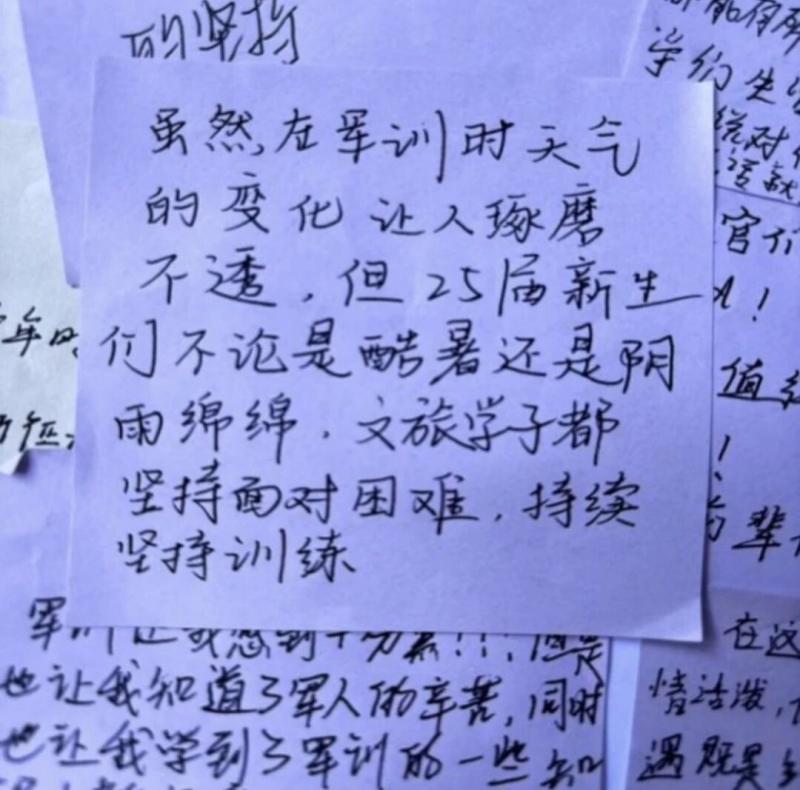 的坚持
虽然在军训时天气
的变化让人琢磨
不透,但25届新生
们不论是酷暑还是阴
雨绵绵,文旅学子都
坚持面对困难,持续
坚持训练
学
绝对
官们
!
值
!
辈
年
军训让我感到十分累!!!但是
也让我知道了军人的辛苦,同时
也让我学到了军训的一些知
在这
情活泼,
遇既是